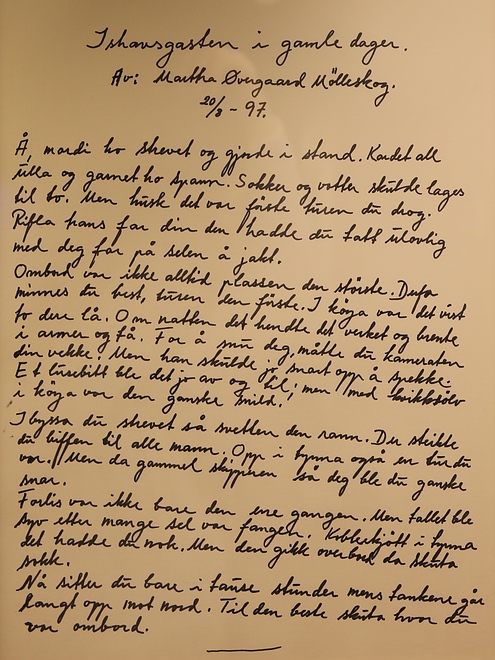 Ishavsgasten i gamle dager.
Av: Martha Øvergaard Mölleskog.
20/3 - 97.
Å, mordi ho strevet og gjorde i stand. Kardet all
ulla og garnet ho spann. Sokker og votter skulde lages
til bo. Men husk det var første turen du drog.
Rifla hans far din den hadde du fått ulovlig
med deg for på selen å jakt.
Ombord var ikke alltid plassen den største. Dufa
minnes du best, turen den første. I köya var det vist
to dere lå. Om natten det hendte det verket og brente
i armer og tå. For å snu deg, måtte du kameraten
din vekke. Men han skulde jo snart opp å spekke.
Et lusebitt ble det jo av og til; men med kvikksölv
i köya var den ganske snild.
I byssa du strevet så svetten den rann. Du steikte
du biffen til alle mann. Opp i tynna også en tur du
var. Men da gammel skipperen så deg ble du ganske
snar.
Forlis var ikke bare den ene gangen. Men tallet ble
syv etter mange sel var fangen. Kobbekjøtt i tynna
det hadde du nok. Men den gikk overbord da skuta
sokk.
Nå sitter du bare i tause stunder mens tankene går
langt opp mot nord. Til den beste skuta hvor du
var ombord.